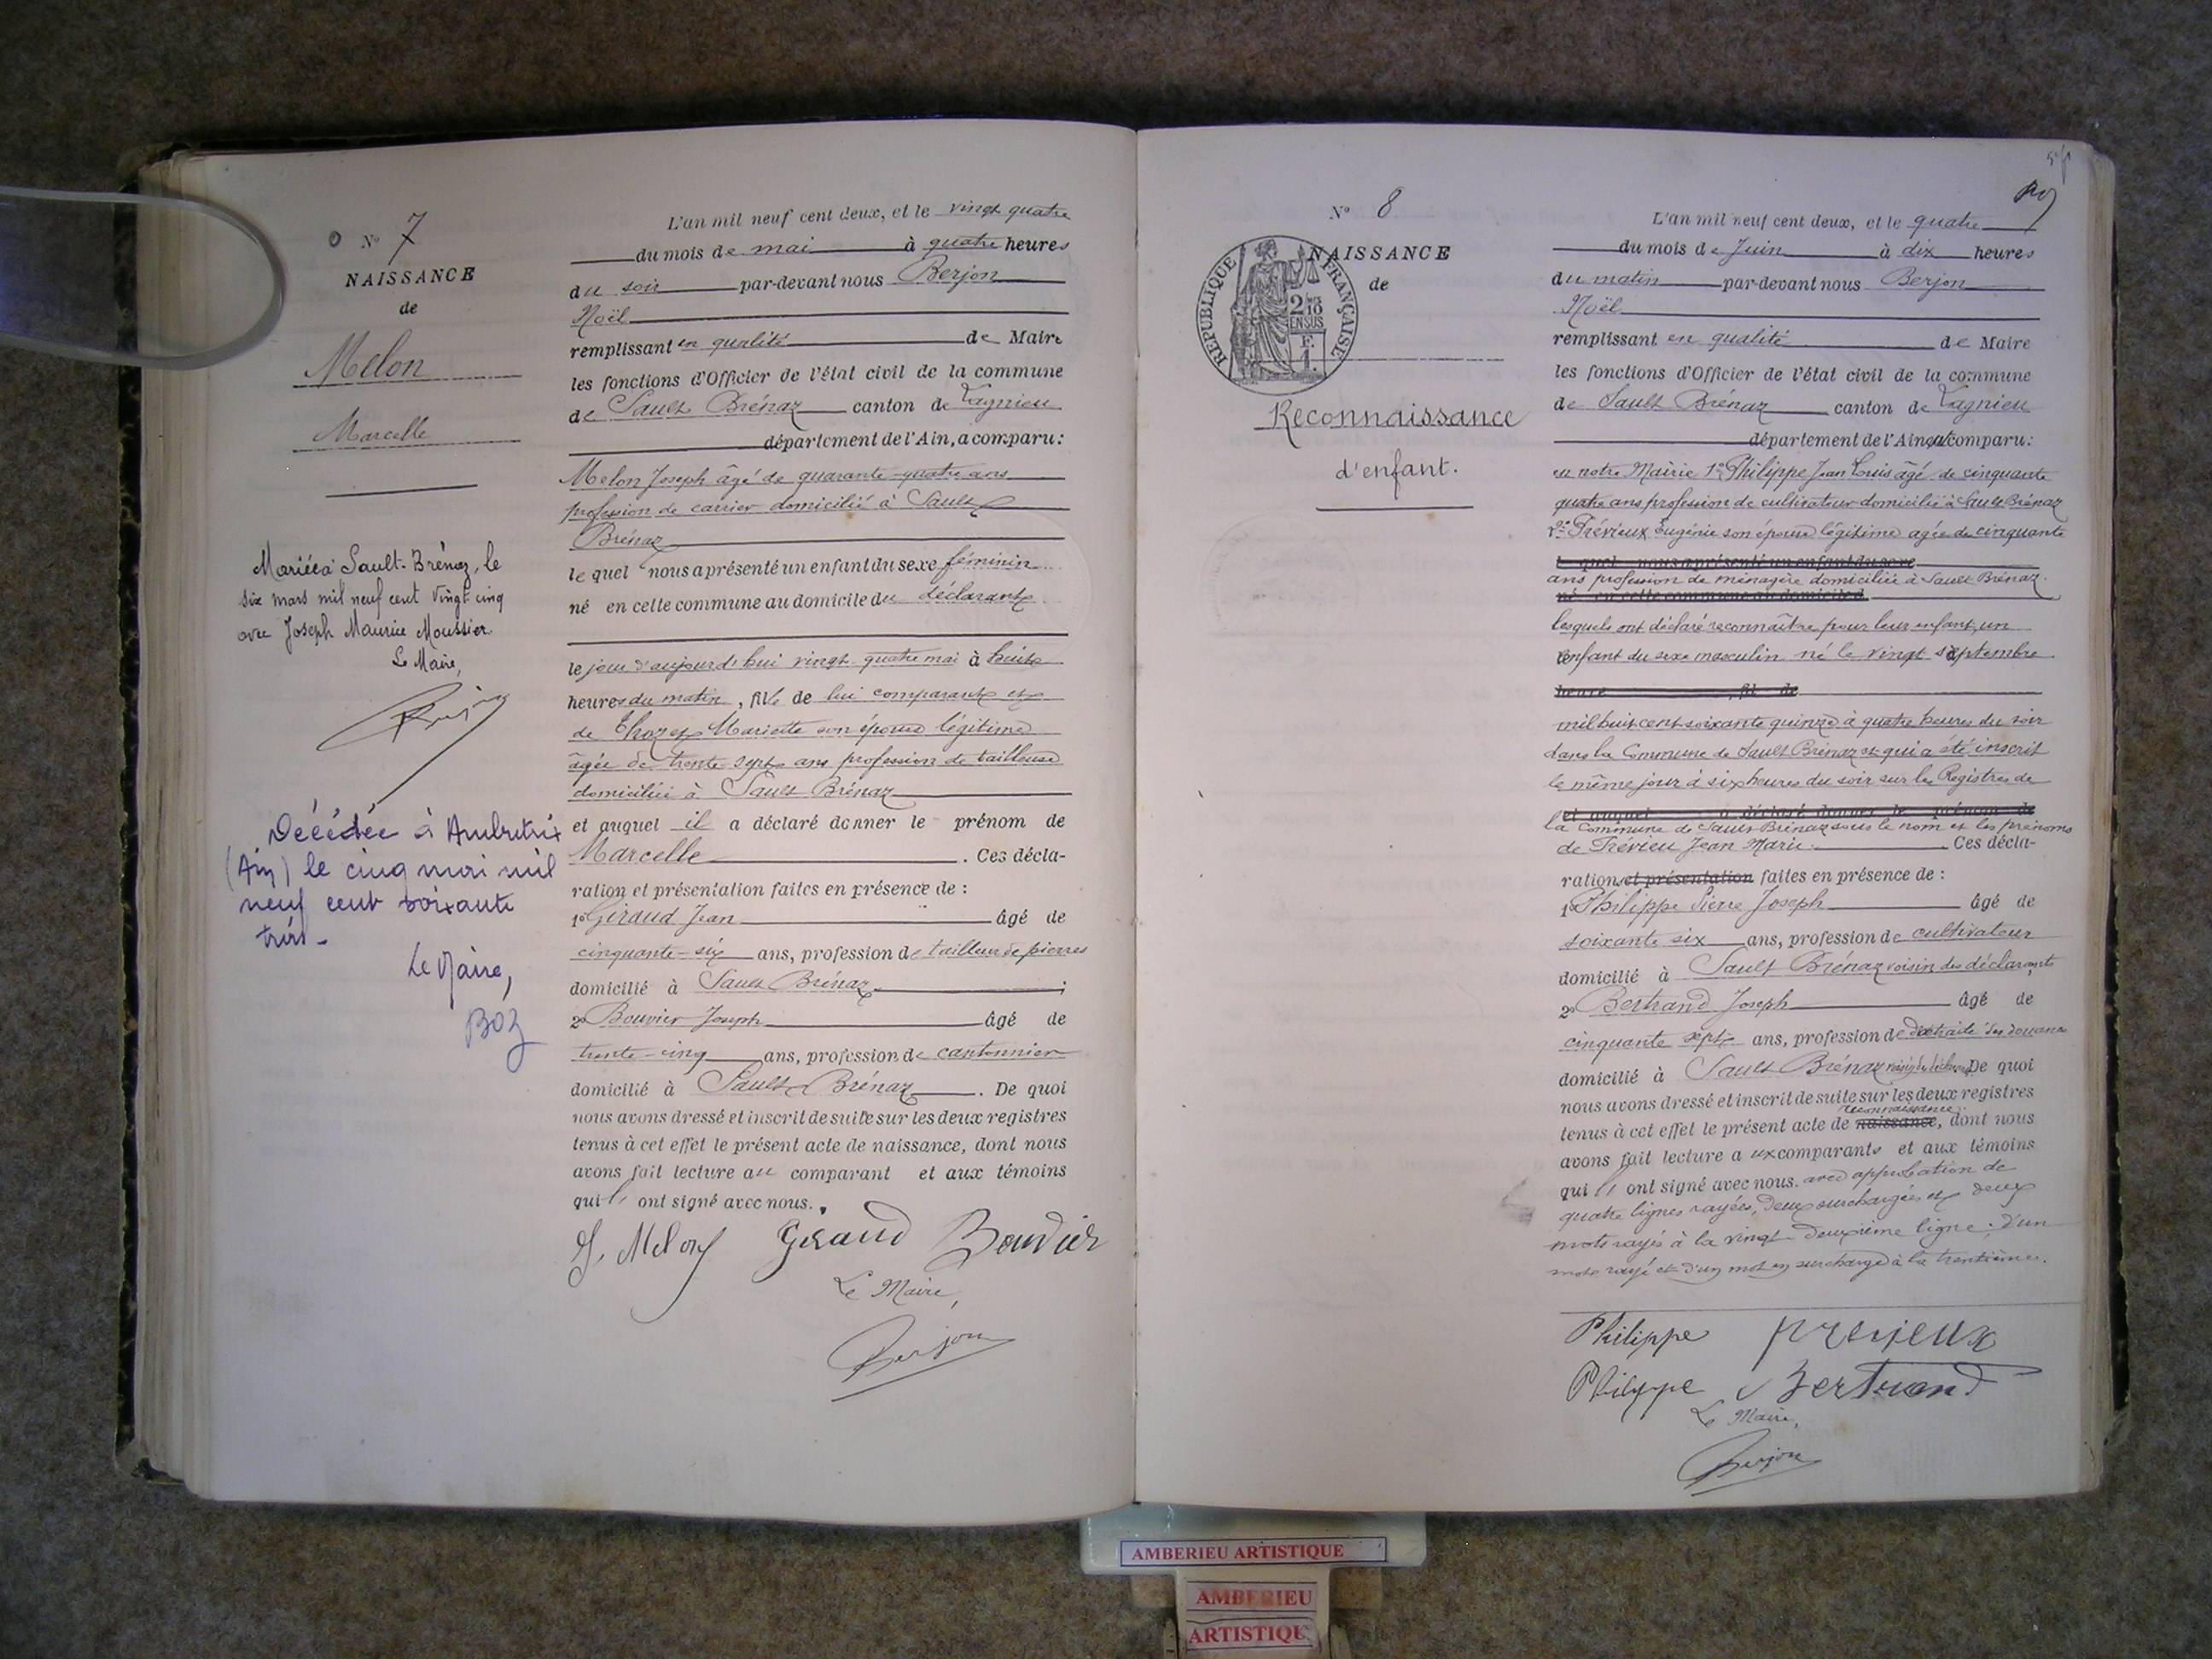 N° 7
NAISSANCE
de
Melon
Marcelle
Mariée à Sault-Brénaz, le
six mars mil neuf cent vingt cinq
avec Joseph Maurice Moussier
Le Maire,
Berjon
Décédée à Ambutrix
(Ain) le cinq mai mil
neuf cent soixante
trois -
Le Maire,
L'an mil neuf cent deux, et le vingt quatre
du mois de mai à quatre heures
du soir par-devant nous Berjon
Noël
remplissant en qualité de Maire
les fonctions d'Officier de l'état civil de la commune
de Sault Brénaz canton de Lagnieu
département de l'Ain, a comparu:
Melon Joseph âgé de quarante-quatre ans
profession de carrier domicilié à Sault
Brénaz
lequel nous a présenté un enfant du sexe féminin
né en cette commune au domicile du déclarant
le jour d'aujourd'hui vingt quatre mai à huit
heures du matin, fils de lui comparant et
de Mariette son épouse légitime
âgée de trente sept ans profession de tailleuse
domiciliée à Sault Brénaz
et auquel il a déclaré donner le prénom de
Marcelle . Ces décla-
ration et présentation faites en présence de :
1° Giraud Jean âgé de
cinquante-six ans, profession de tailleur de pierres
domicilié à Sault Brénaz ;
2° Bouvier Joseph âgé de
trente-cinq ans, profession de cantonnier
domicilié à Sault Brénaz . De quoi
nous avons dressé et inscrit de suite sur les deux registres
tenus à cet effet le présent acte de naissance, dont nous
avons fait lecture au comparant et aux témoins
qui ont signé avec nous.
J. Melon Giraud Bouvier
Le Maire,
Berjon
N° 8
NAISSANCE
de
RÉPUBLIQUE FRANÇAISE
2/10
EN SUS
F.
1.
Reconnaissance
d'enfant.
L'an mil neuf cent deux, et le quatre
du mois de Juin à dix heures
du matin par-devant nous Berjon
Noël
remplissant en qualité de Maire
les fonctions d'Officier de l'état civil de la commune
de Sault Brénaz canton de Lagnieu
département de l'Ain, a comparu:
en notre Mairie 1° Philippe Jean Louis âgé de cinquante
quatre ans profession de cultivateur domicilié à Sault Brénaz
2° Trévieux Eugénie son épouse légitime âgée de cinquante
lequel nous a présenté un enfant du sexe
ans profession de ménagère domiciliée à Sault Brénaz.
né en cette commune au domicile d
lesquels ont déclaré reconnaître pour leur enfant, un
enfant du sexe masculin né le vingt septembre
heure , fil de
mil huit cent soixante quinze à quatre heures du soir
dans la Commune de Sault Brénaz et qui a été inscrit
le même jour à six heures du soir sur les Registres de
et auquel a déclaré donner le prénom de
la Commune de Sault Brénaz sous le nom et les prénoms
de Trévieu Jean Marie. Ces décla-
rations et présentation faites en présence de :
1° Philippe Pierre Joseph âgé de
soixante six ans, profession de cultivateur
domicilié à Sault Brénaz voisin des déclarants
2° Bertrand Joseph âgé de
cinquante sept ans, profession de retraité des douanes
domicilié à Sault Brénaz De quoi
nous avons dressé et inscrit de suite sur les deux registres
reconnaissance
tenus à cet effet le présent acte de naissance, dont nous
avons fait lecture aux comparants et aux témoins
qui ont signé avec nous. avec approbation de
quatre lignes rayées, deux surchargées et deux
mots rayés à la vingt-deuxième ligne; d'un
mot rayé et d'un mot en surcharge à la trentième.
Philippe Trevieux
Philippe J Bertrand
Le Maire,
Berjon
AMBERIEU ARTISTIQUE
AMBERIEU
ARTISTIQUE